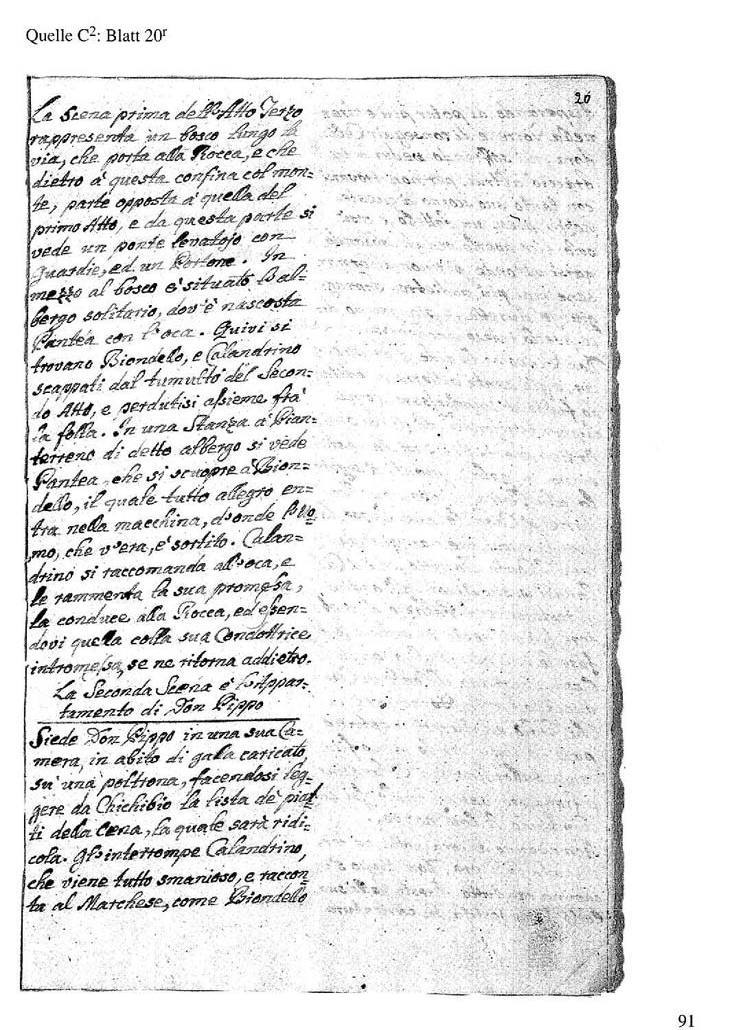 Quelle C²: Blatt 20ʳ
20
La Scena prima dell'Atto Terzo
rappresenta un bosco lungo la
via, che porta alla Rocca, e che
dietro a' questa confina col mon=
te, parte opposta a' quella del
primo Atto, e da questa parte si
vede un ponte levatojo con
Guardie, ed un Portone. In
mezzo al bosco è situato l'al=
bergo solitario, dov'è nascosta
Pantèa con l'oca. Quivi si
trovano Biondello, e Calandrino
scappati dal tumulto del Secon=
do Atto, e perdutisi assieme frà
la folla. In una Stanza a' Pian=
terreno di detto albergo si vede
Pantea, che si scuopre a' Bion=
dello, il quale tutto allegro en=
tra nella macchina, d'onde l'Uo=
mo, che v'era, è sortito. Calan=
drino si raccomanda all'oca, e
le rammenta la sua promessa,
la conduce alla Rocca, ed essen=
dovi quella colla sua Condottrice
intromessa, se ne ritorna addietro.
La Seconda Scena è l'Appar=
tamento di Don Pippo
Siede Don Pippo in una sua Ca=
mera, in abito di gala caricato
su' una poltrona, facendosi leg=
gere da Chichibio la lista de' piat=
ti della Cena, la quale sarà ridi=
cola. Gl'interrompe Calandrino,
che viene tutto smanioso, e raccon=
ta al Marchese, come Biondello
91